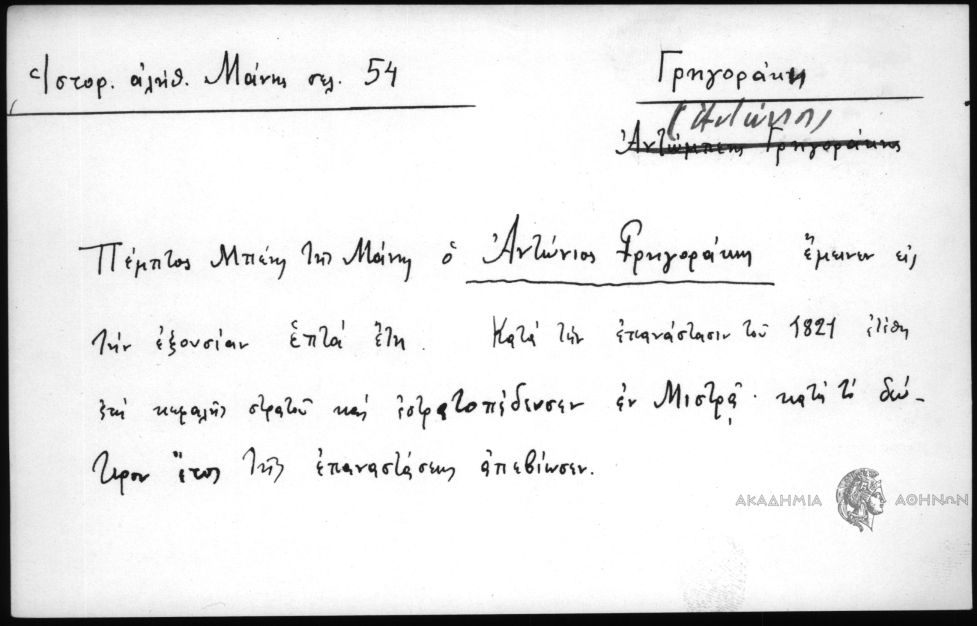 Ἱστορ. ἀλήθ. Μάνης σελ. 54
Γρηγοράκης
(Ἀντώνιος
Ἀντώμπεης Γρηγοράκης
Πέμπτος Μπέης τῆς Μάνης ὁ Ἀντώνιος Γρηγοράκης ἔμεινεν εἰς
τήν ἐξουσίαν ἑπτά ἔτη. Κατά τήν ἐπανάστασιν τοῦ 1821 ἐτέθη
ἐπί κεφαλῆς στρατοῦ καί ἐστρατοπέδευσεν ἐν Μιστρᾷ· κατά τό δεύ-
τερον ἔτος τῆς ἐπαναστάσεως ἀπεβίωσεν.
ΑΚΑΔΗΜΙΑ ΑΘΗΝΩΝ